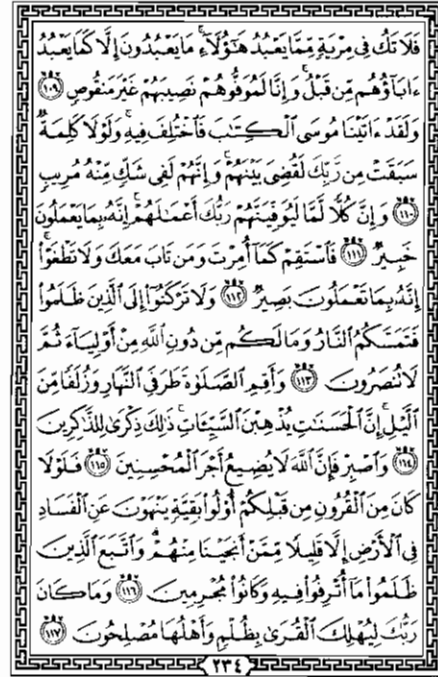 فَلَا تَكُ فِى مِرْيَةٍ مِّمَّا يَعْبُدُ هَٰٓؤُلَآءِ ۚ مَا يَعْبُدُونَ إِلَّا كَمَا يَعْبُدُ
ءَابَآؤُهُم مِّن قَبْلُ ۚ وَإِنَّا لَمُوَفُّوهُمْ نَصِيبَهُمْ غَيْرَ مَنقُوصٍ ١٠٩
وَلَقَدْ ءَاتَيْنَا مُوسَى ٱلْكِتَٰبَ فَٱخْتُلِفَ فِيهِ ۚ وَلَوْلَا كَلِمَةٌ
سَبَقَتْ مِن رَّبِّكَ لَقُضِىَ بَيْنَهُمْ ۚ وَإِنَّهُمْ لَفِى شَكٍّ مِّنْهُ مُرِيبٍ
١١٠ وَإِنَّ كُلًّا لَّمَّا لَيُوَفِّيَنَّهُمْ رَبُّكَ أَعْمَٰلَهُمْ ۚ إِنَّهُۥ بِمَا يَعْمَلُونَ
خَبِيرٌ ١١١ فَٱسْتَقِمْ كَمَآ أُمِرْتَ وَمَن تَابَ مَعَكَ وَلَا تَطْغَوْا۟ ۚ
إِنَّهُۥ بِمَا تَعْمَلُونَ بَصِيرٌ ١١٢ وَلَا تَرْكَنُوٓا۟ إِلَى ٱلَّذِينَ ظَلَمُوا۟
فَتَمَسَّكُمُ ٱلنَّارُ وَمَا لَكُم مِّن دُونِ ٱللَّهِ مِنْ أَوْلِيَآءَ ثُمَّ
لَا تُنصَرُونَ ١١٣ وَأَقِمِ ٱلصَّلَوٰةَ طَرَفَىِ ٱلنَّهَارِ وَزُلَفًا مِّنَ
ٱلَّيْلِ ۚ إِنَّ ٱلْحَسَنَٰتِ يُذْهِبْنَ ٱلسَّيِّـَٔاتِ ۚ ذَٰلِكَ ذِكْرَىٰ لِلذَّٰكِرِينَ
١١٤ وَٱصْبِرْ فَإِنَّ ٱللَّهَ لَا يُضِيعُ أَجْرَ ٱلْمُحْسِنِينَ ١١٥ فَلَوْلَا
كَانَ مِنَ ٱلْقُرُونِ مِن قَبْلِكُمْ أُو۟لُوا۟ بَقِيَّةٍ يَنْهَوْنَ عَنِ ٱلْفَسَادِ
فِى ٱلْأَرْضِ إِلَّا قَلِيلًا مِّمَّنْ أَنجَيْنَا مِنْهُمْ ۗ وَٱتَّبَعَ ٱلَّذِينَ
ظَلَمُوا۟ مَآ أُتْرِفُوا۟ فِيهِ وَكَانُوا۟ مُجْرِمِينَ ١١٦ وَمَا كَانَ
رَبُّكَ لِيُهْلِكَ ٱلْقُرَىٰ بِظُلْمٍ وَأَهْلُهَا مُصْلِحُونَ ١١٧
٢٣٤